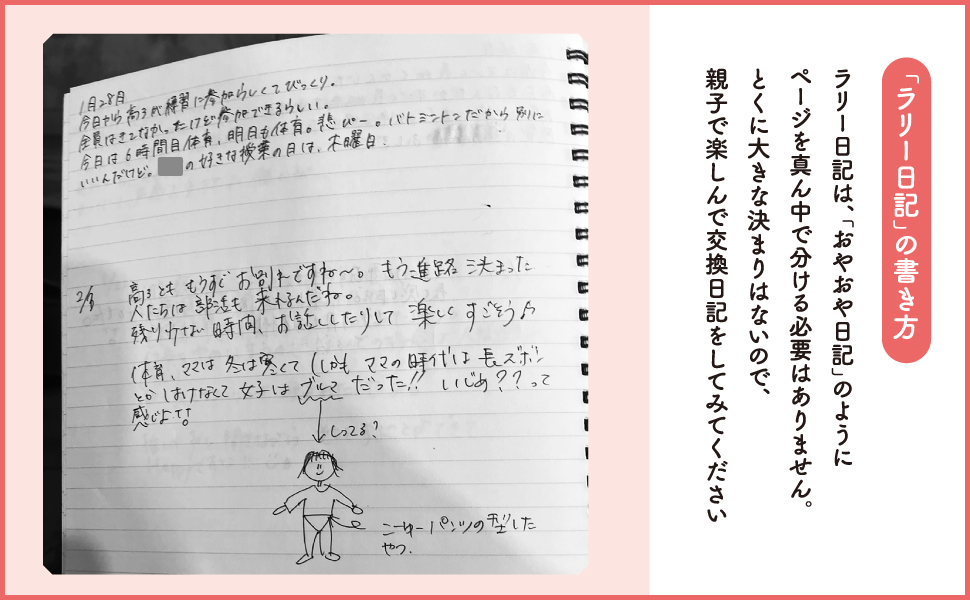 「ラリー日記」の書き方
ラリー日記は、「おやおや日記」のように
ページを真ん中で分ける必要はありません。
とくに大きな決まりはないので、
親子で楽しんで交換日記をしてみてください
1月28日
今日から高3が練習に参加らしくてびっくり。
全員はきてなかったけど参加できるらしい。
今日は6時間目体育、明日も体育。悲ぴー。バトミントンだから別に
いいんだけど。の好きな授業の日は、木曜日.
2/3
高3とももうすぐお別れですね〜。もう進路決まった
人たちは部活も来れるんだね。
残り少ない時間、お話ししたりして楽しくすごそう♪
体育、ママは冬は寒くて(しかもママの時代は長ズボン
とかはけなくて女子はブルマだった!!いじめ??って
感じよ!!
しってる?
こーゆーパンツの型した
やつ.